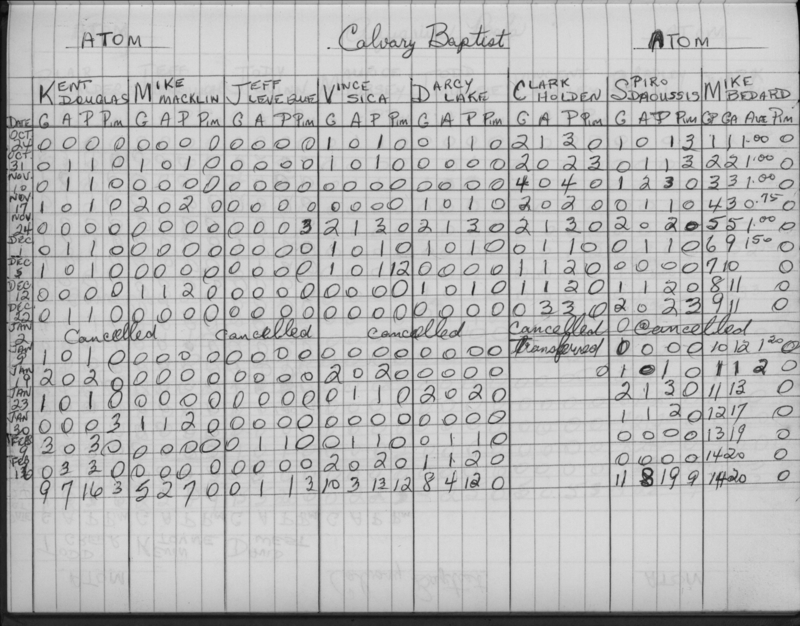 ATOM Calvary Baptist ATOM
KENT DOUGLAS MIKE MACKLIN JEFF LEVEGUE VINCE SICA DARCY LAKE CLARK HOLDEN SPIRO DROUSSIS MIKE BEDARD
DATE G A P Pim G A P Pim G A P Pim G A P Pim G A P Pim G A P Pim G A P Pim GP GA AVE Pim
OCT. 24 0 0 0 0 0 0 0 0 0 0 0 0 1 0 1 0 0 1 1 0 2 1 3 0 1 0 1 3 1 1 1.00 0
OCT. 31 0 1 1 0 1 0 1 0 0 0 0 0 1 0 1 0 0 0 0 0 2 0 2 3 0 1 1 3 2 2 1.00 0
NOV. 10 0 1 1 0 0 0 0 0 0 0 0 0 0 0 0 0 0 0 0 0 4 0 4 0 1 2 3 0 3 3 1.00 0
NOV 17 1 0 1 0 2 0 2 0 0 0 0 0 0 0 0 0 1 0 1 0 2 0 2 0 0 1 1 0 4 3 0.75 0
NOV 24 0 0 0 0 0 0 0 0 0 0 0 3 2 1 3 0 2 1 3 0 2 1 3 0 2 0 2 0 5 5 1.00 0
DEC 0 1 1 0 0 0 0 0 0 0 0 0 1 0 1 0 1 0 1 0 0 1 1 0 0 1 1 0 6 9 1.50 0
DEC 5 1 0 1 0 0 0 0 0 0 0 0 0 1 0 1 12 0 0 0 0 1 1 2 0 0 0 0 0 7 10 0
DEC 12 0 0 0 0 1 1 2 0 0 0 0 0 0 0 0 0 1 0 1 0 1 1 2 0 1 1 2 0 8 11 0
DEC 22 0 1 1 0 0 0 0 0 0 0 0 0 0 0 0 0 0 0 0 0 0 3 3 0 2 0 2 3 9 11 0
JAN 2 Cancelled Cancelled Cancelled Cancelled 0 Cancelled
JAN 9 1 0 1 0 0 0 0 0 0 0 0 0 0 0 0 0 0 0 0 0 Transferred 0 0 0 0 10 12 1.20 0
JAN 19 2 0 2 0 0 0 0 0 0 0 0 0 2 0 2 0 0 0 0 0 0 1 0 1 0 11 2 0
JAN 23 1 0 1 0 0 0 0 0 0 0 0 0 0 1 1 0 2 0 2 0 2 1 3 0 11 13 0
JAN 30 0 0 0 3 1 1 2 0 0 0 0 0 0 0 0 0 0 0 0 0 1 1 2 0 12 17 0
FEB 9 3 0 3 0 0 0 0 0 0 1 1 0 0 1 1 0 0 1 1 0 0 0 0 0 13 19 0
FEB 0 3 3 0 0 0 0 0 0 0 0 0 2 0 2 0 1 1 2 0 0 0 0 0 14 20 0
9 7 16 3 5 2 7 0 0 1 1 3 10 3 13 12 8 4 12 0 11 8 19 9 14 20 0